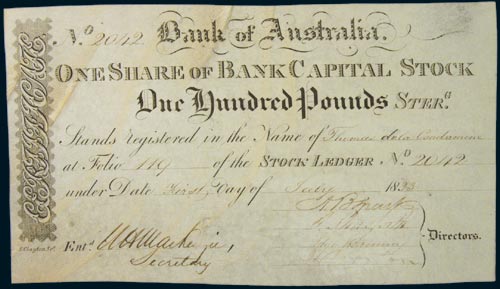 CERTIFICATE
No. 2042 Bank of Australia.
ONE SHARE OF BANK CAPITAL STOCK
One Hundred Pounds STERG.
Stands registered in the Name of Thomas de la Condamine
at Folio 119 of the STOCK LEDGER No. 2042
under Date First Day of July 1833
Directors.
Entd.
Secretary